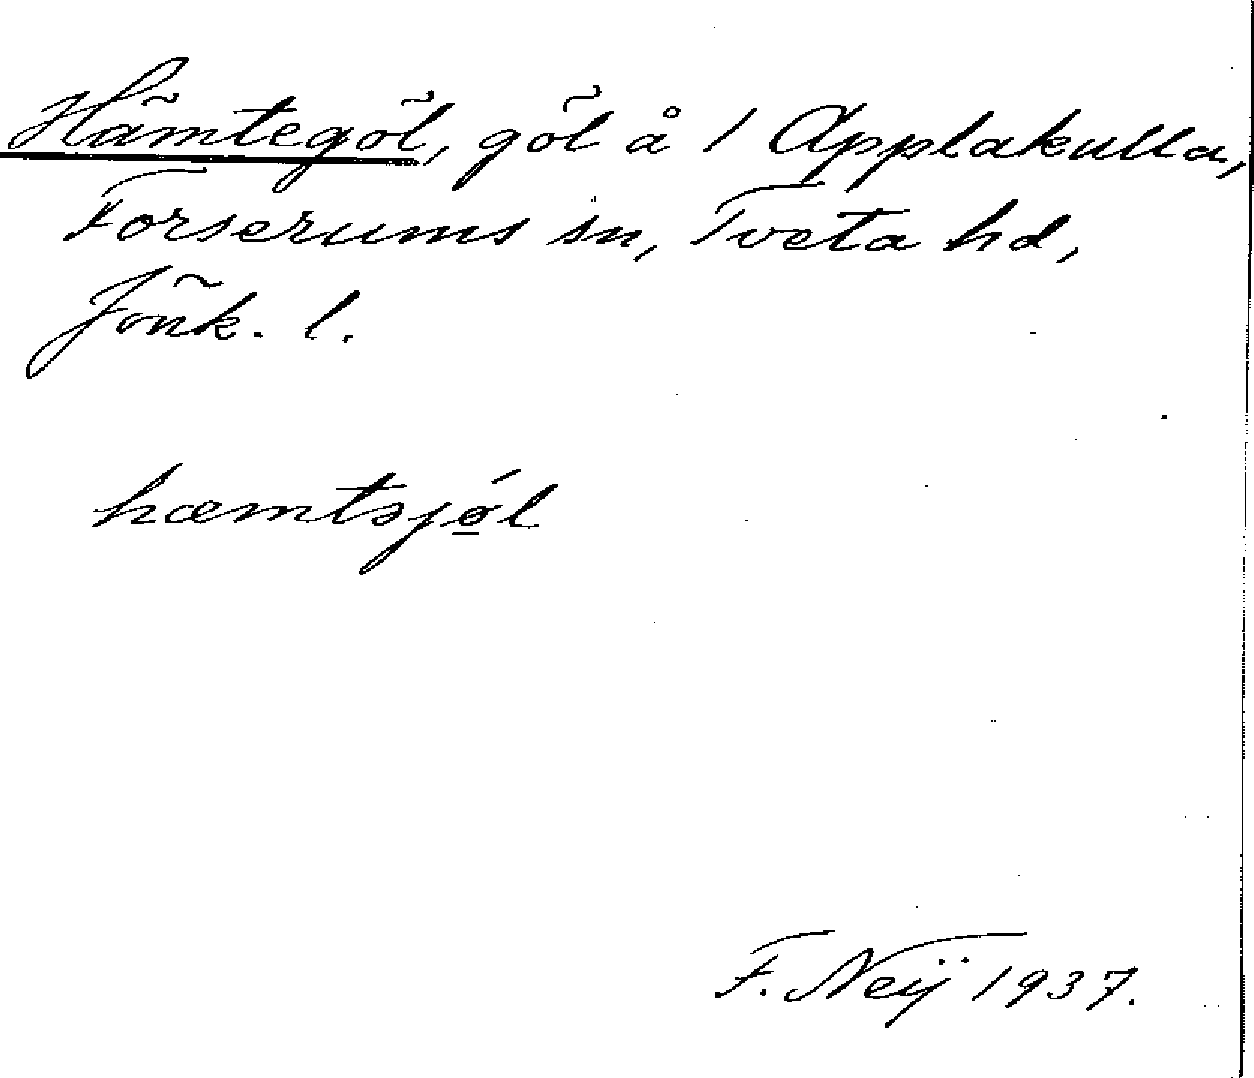 Hämtegöl, göl å 1 Applakulla,
Forserums sn, Tveta hd,
Jönk. l.
hæmtsjǿ̱l
F. Neij 1937.